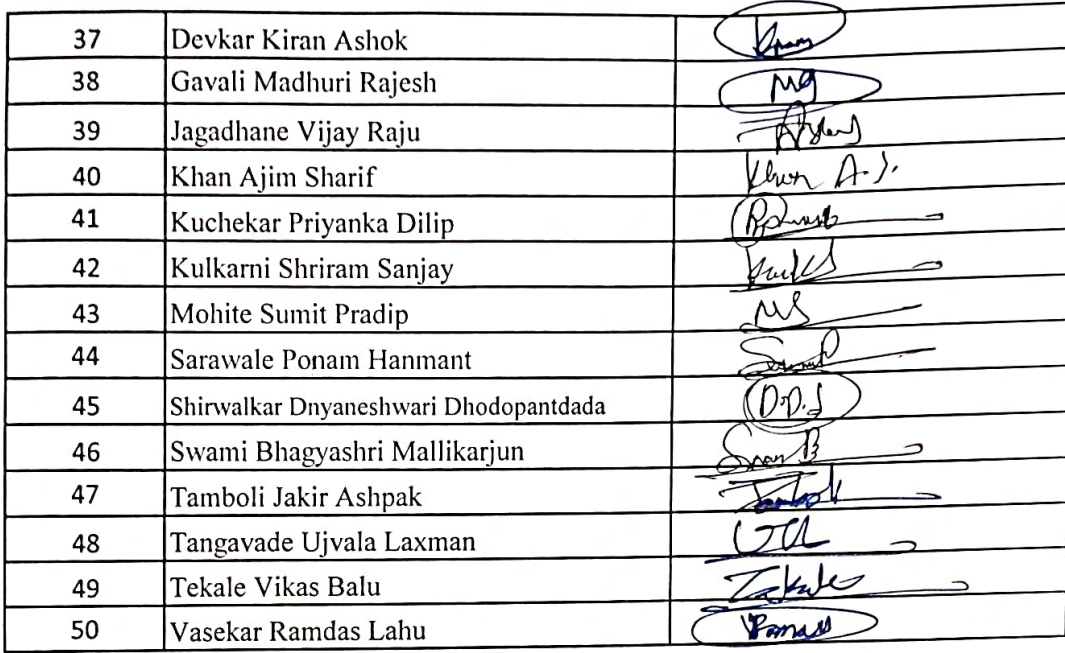 37 Devkar Kiran Ashok
38 Gavali Madhuri Rajesh MG
39 Jagadhane Vijay Raju
40 Khan Ajim Sharif Khan A.S.
41 Kuchekar Priyanka Dilip
42 Kulkarni Shriram Sanjay
43 Mohite Sumit Pradip MS
44 Sarawale Ponam Hanmant
45 Shirwalkar Dnyaneshwari Dhodopantdada D.D.S
46 Swami Bhagyashri Mallikarjun
47 Tamboli Jakir Ashpak
48 Tangavade Ujvala Laxman
49 Tekale Vikas Balu
50 Vasekar Ramdas Lahu